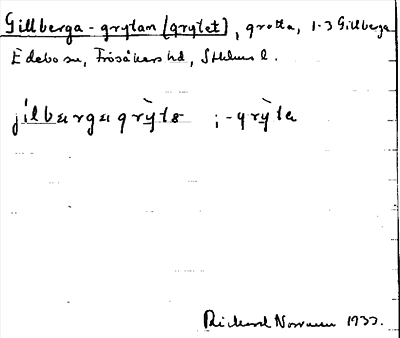 Gillberga-grytan [grytet], grotta, 1-3 Gillberga
Edebo sn, Frösåkers hd, Sthlms l.
jilbargagrỳtə ; -grỳta
Richard Norman 1933.